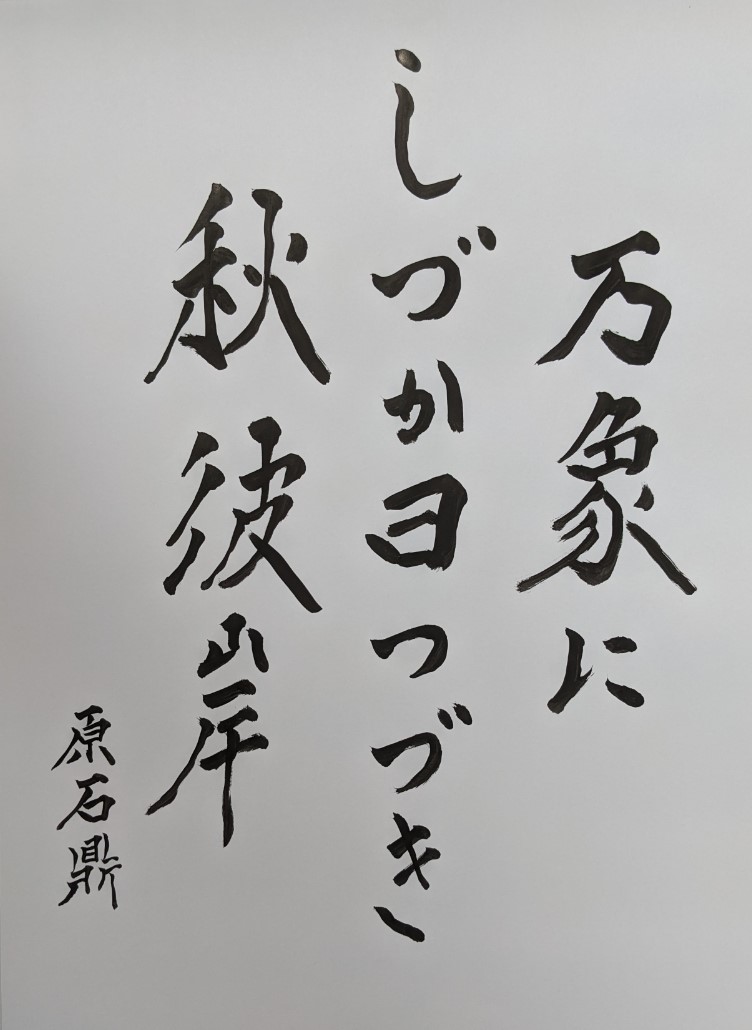 万象に
しづか日つづき
秋彼岸
原石鼎